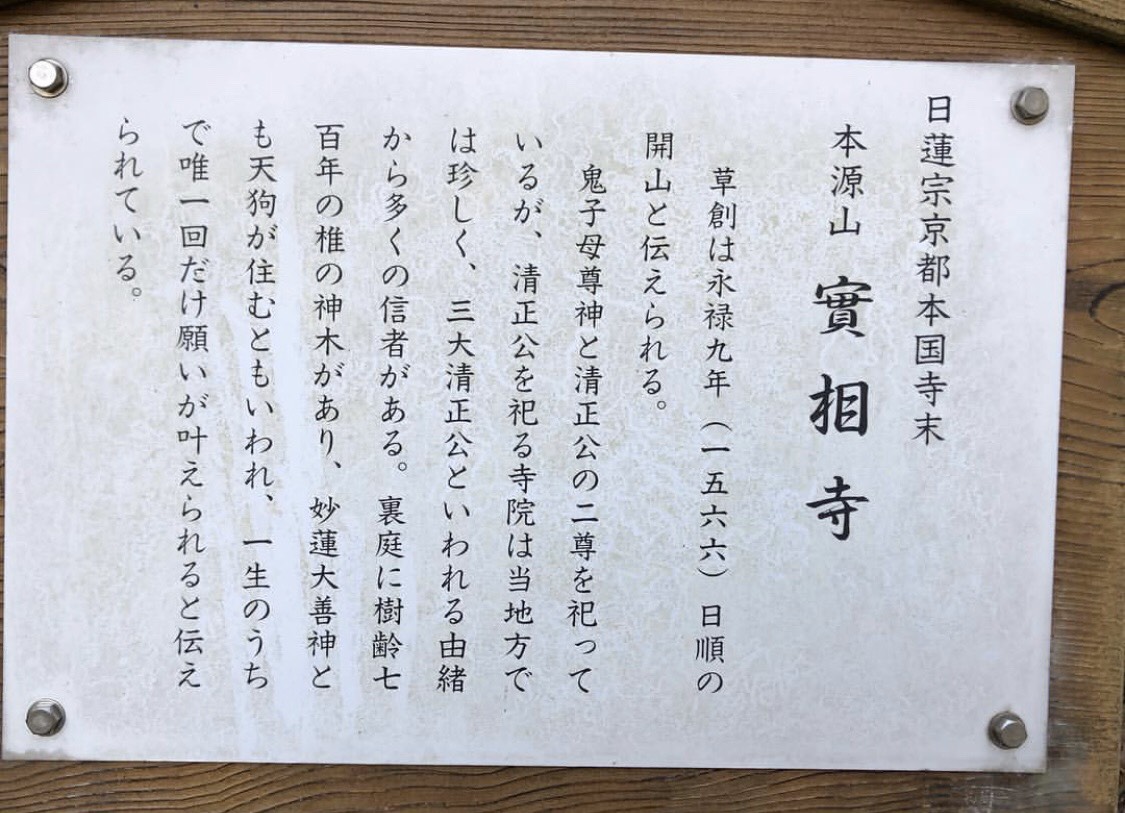 日蓮宗京都本国寺末
本源山 實相寺
草創は永禄九年（一五六六）日順の
開山と伝えられる。
鬼子母尊神と清正公の二尊を祀って
いるが、清正公を祀る寺院は当地方で
は珍しく、三大清正公といわれる由緒
から多くの信者がある。裏庭に樹齢七
百年の椎の神木があり、妙蓮大善神と
も天狗が住むともいわれ、一生のうち
で唯一回だけ願いが叶えられると伝え
られている。